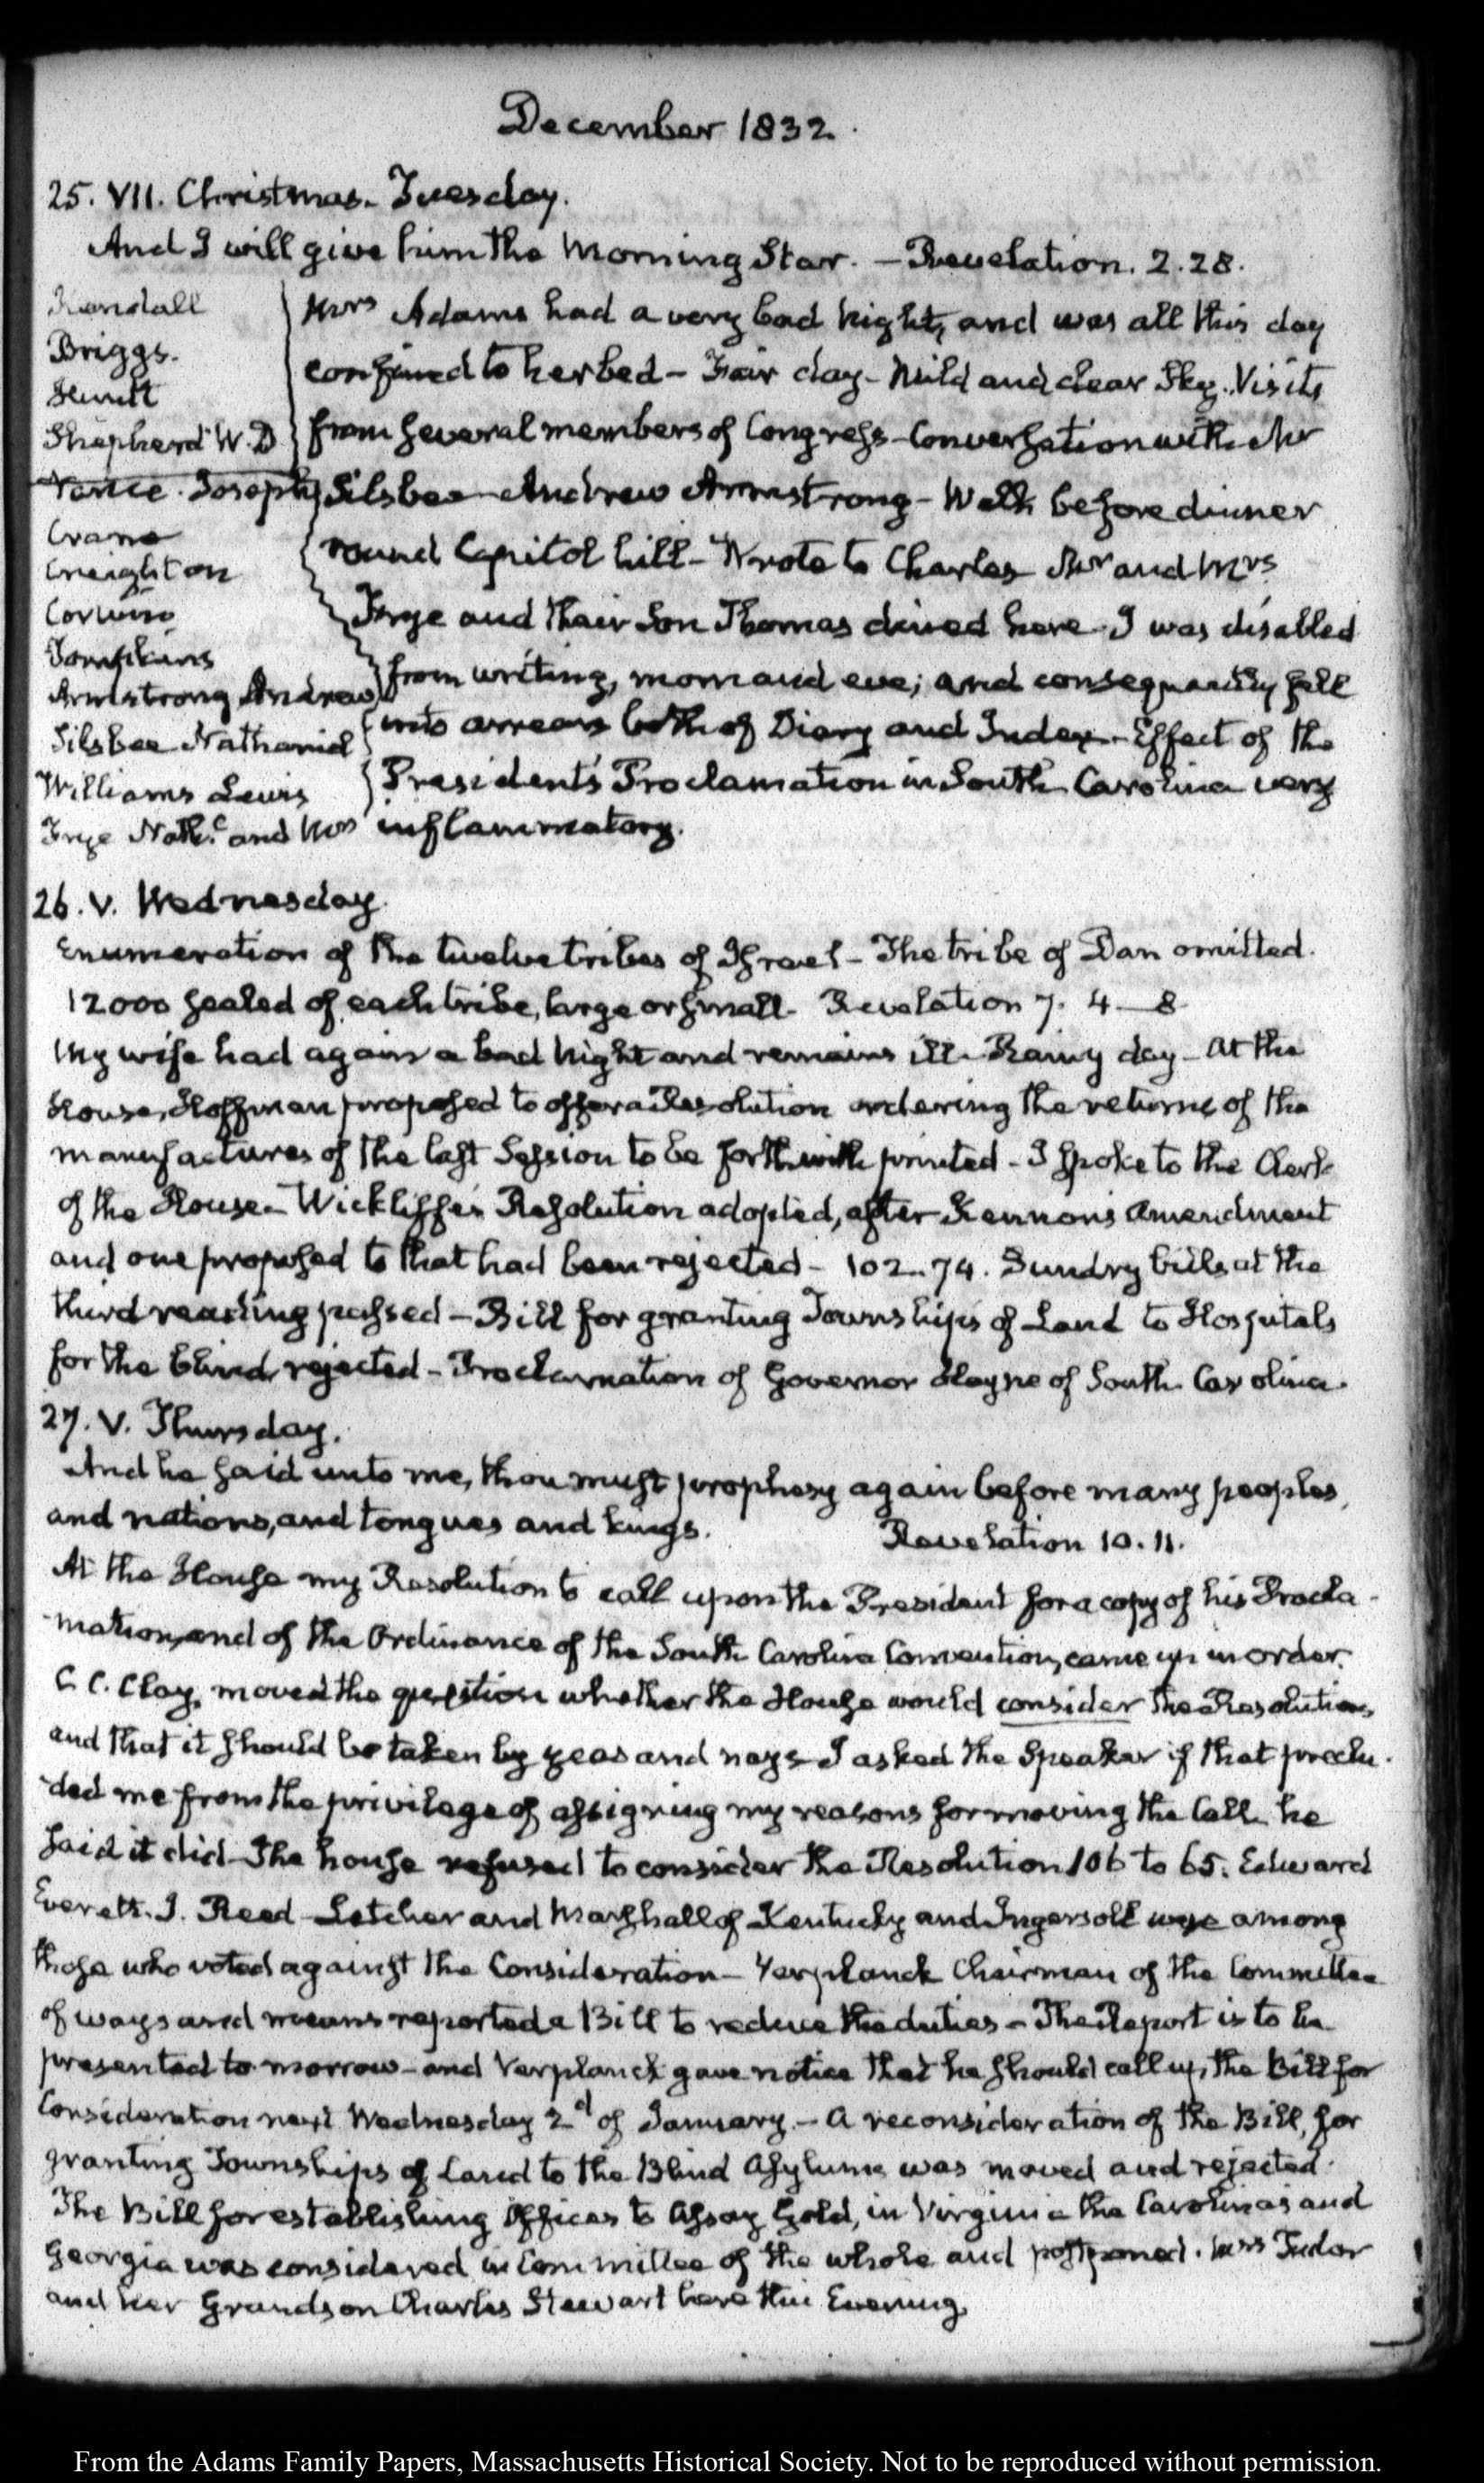 December 1832.
25. VII. Christmas. Tuesday.
And I will give him the Morning Star. — Revelation. 2.28.
Kendall
Briggs.
Hewitt
Shepherd W. D
Vance. Joseph
Crane
Creighton
Corwin
Tompkins
Armstrong Andrew
Silsbee Nathaniel
Williams Lewis
Frye Nathl. and Mrs
Mrs Adams had a very bad Night, and was all this day
confined to her bed - Fair day - Mild and clear Sky. Visits
from several members of Congress - Conversation with Mr
Silsbee - Andrew Armstrong - Walk before dinner
round Capitol hill - Wrote to Charles Mr and Mrs
Frye and their Son Thomas dined here. I was disabled
from writing, morn and eve; and consequently fell
into arrears both of Diary and Index - Effect of the
President's Proclamation in South Carolina very
inflammatory.
26. V. Wednesday.
Enumeration of the twelve tribes of Israel - The tribe of Dan omitted.
12000 sealed of each tribe, large or small. Revelation 7. 4-8
My wife had again a bad Night and remains ill - Rainy day - At the
House, Hoffman proposed to offer a Resolution ordering the returns of the
manufactures of the last Session to be forthwith printed - I spoke to the Clerk
of the House - Wickliffe's Resolution adopted, after Kennon's Amendment
and one proposed to that had been rejected - 102..74. Sundry bills at the
third reading passed - Bill for granting Townships of Land to Hospitals
for the blind, rejected - Proclamation of Governor Hayne of South Carolina.
27. V. Thursday.
And he said unto me, thou must prophesy again before many peoples,
and nations, and tongues and kings. Revelation 10.11.
At the House my Resolution to call upon the President for a copy of his Procla-
mation, and of the Ordinance of the South Carolina Convention, came up in order.
C. C. Clay, moved the question whether the House would consider the Resolution,
and that it should be taken by yeas and nays - I asked the Speaker if that preclu-
ded me from the privilege of assigning my reasons for moving the Call. he
said it did - The house refused to consider the Resolution 106 to 65. Edward
Everett. J. Reed - Letcher and Marshall of Kentucky and Ingersoll were among
those who voted against the Consideration - Verplanck Chairman of the Committee
of ways and means reported a Bill to reduce the duties - The Report is to be
presented to-morrow - and Verplanck gave notice that he should call up, the Bill for
Consideration next Wednesday 2d of January. - A reconsideration of the Bill, for
granting Townships of Land to the Blind Asylums was moved and rejected.
The Bill for establishing Offices to Assay Gold, in Virginia the Carolinas and
Georgia was considered in Committee of the whole and postponed. Mrs Tudor
and her Grandson Charles Stewart here this Evening.
From the Adams Family Papers, Massachusetts Historical Society. Not to be reproduced without permission.